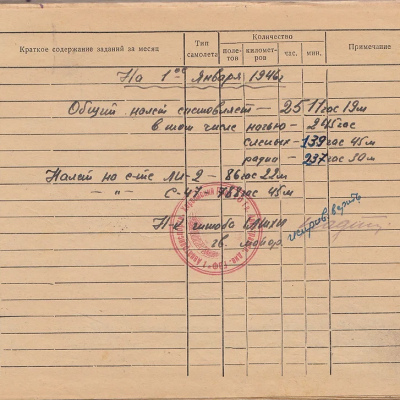 Краткое содержание заданий за месяц
Тип самолета
Количество
полетов
километров
час.
мин.
Примечание
На 1ое Января 1946г
Общий налет составляет — 2511час 19м
в том числе ночью — 245час
слепых — 139час 45м
радио — 237час 50м
Налет на с-те ЛИ-2 — 86час 22м
— " — С-47 — 788час 45м
гв. майор